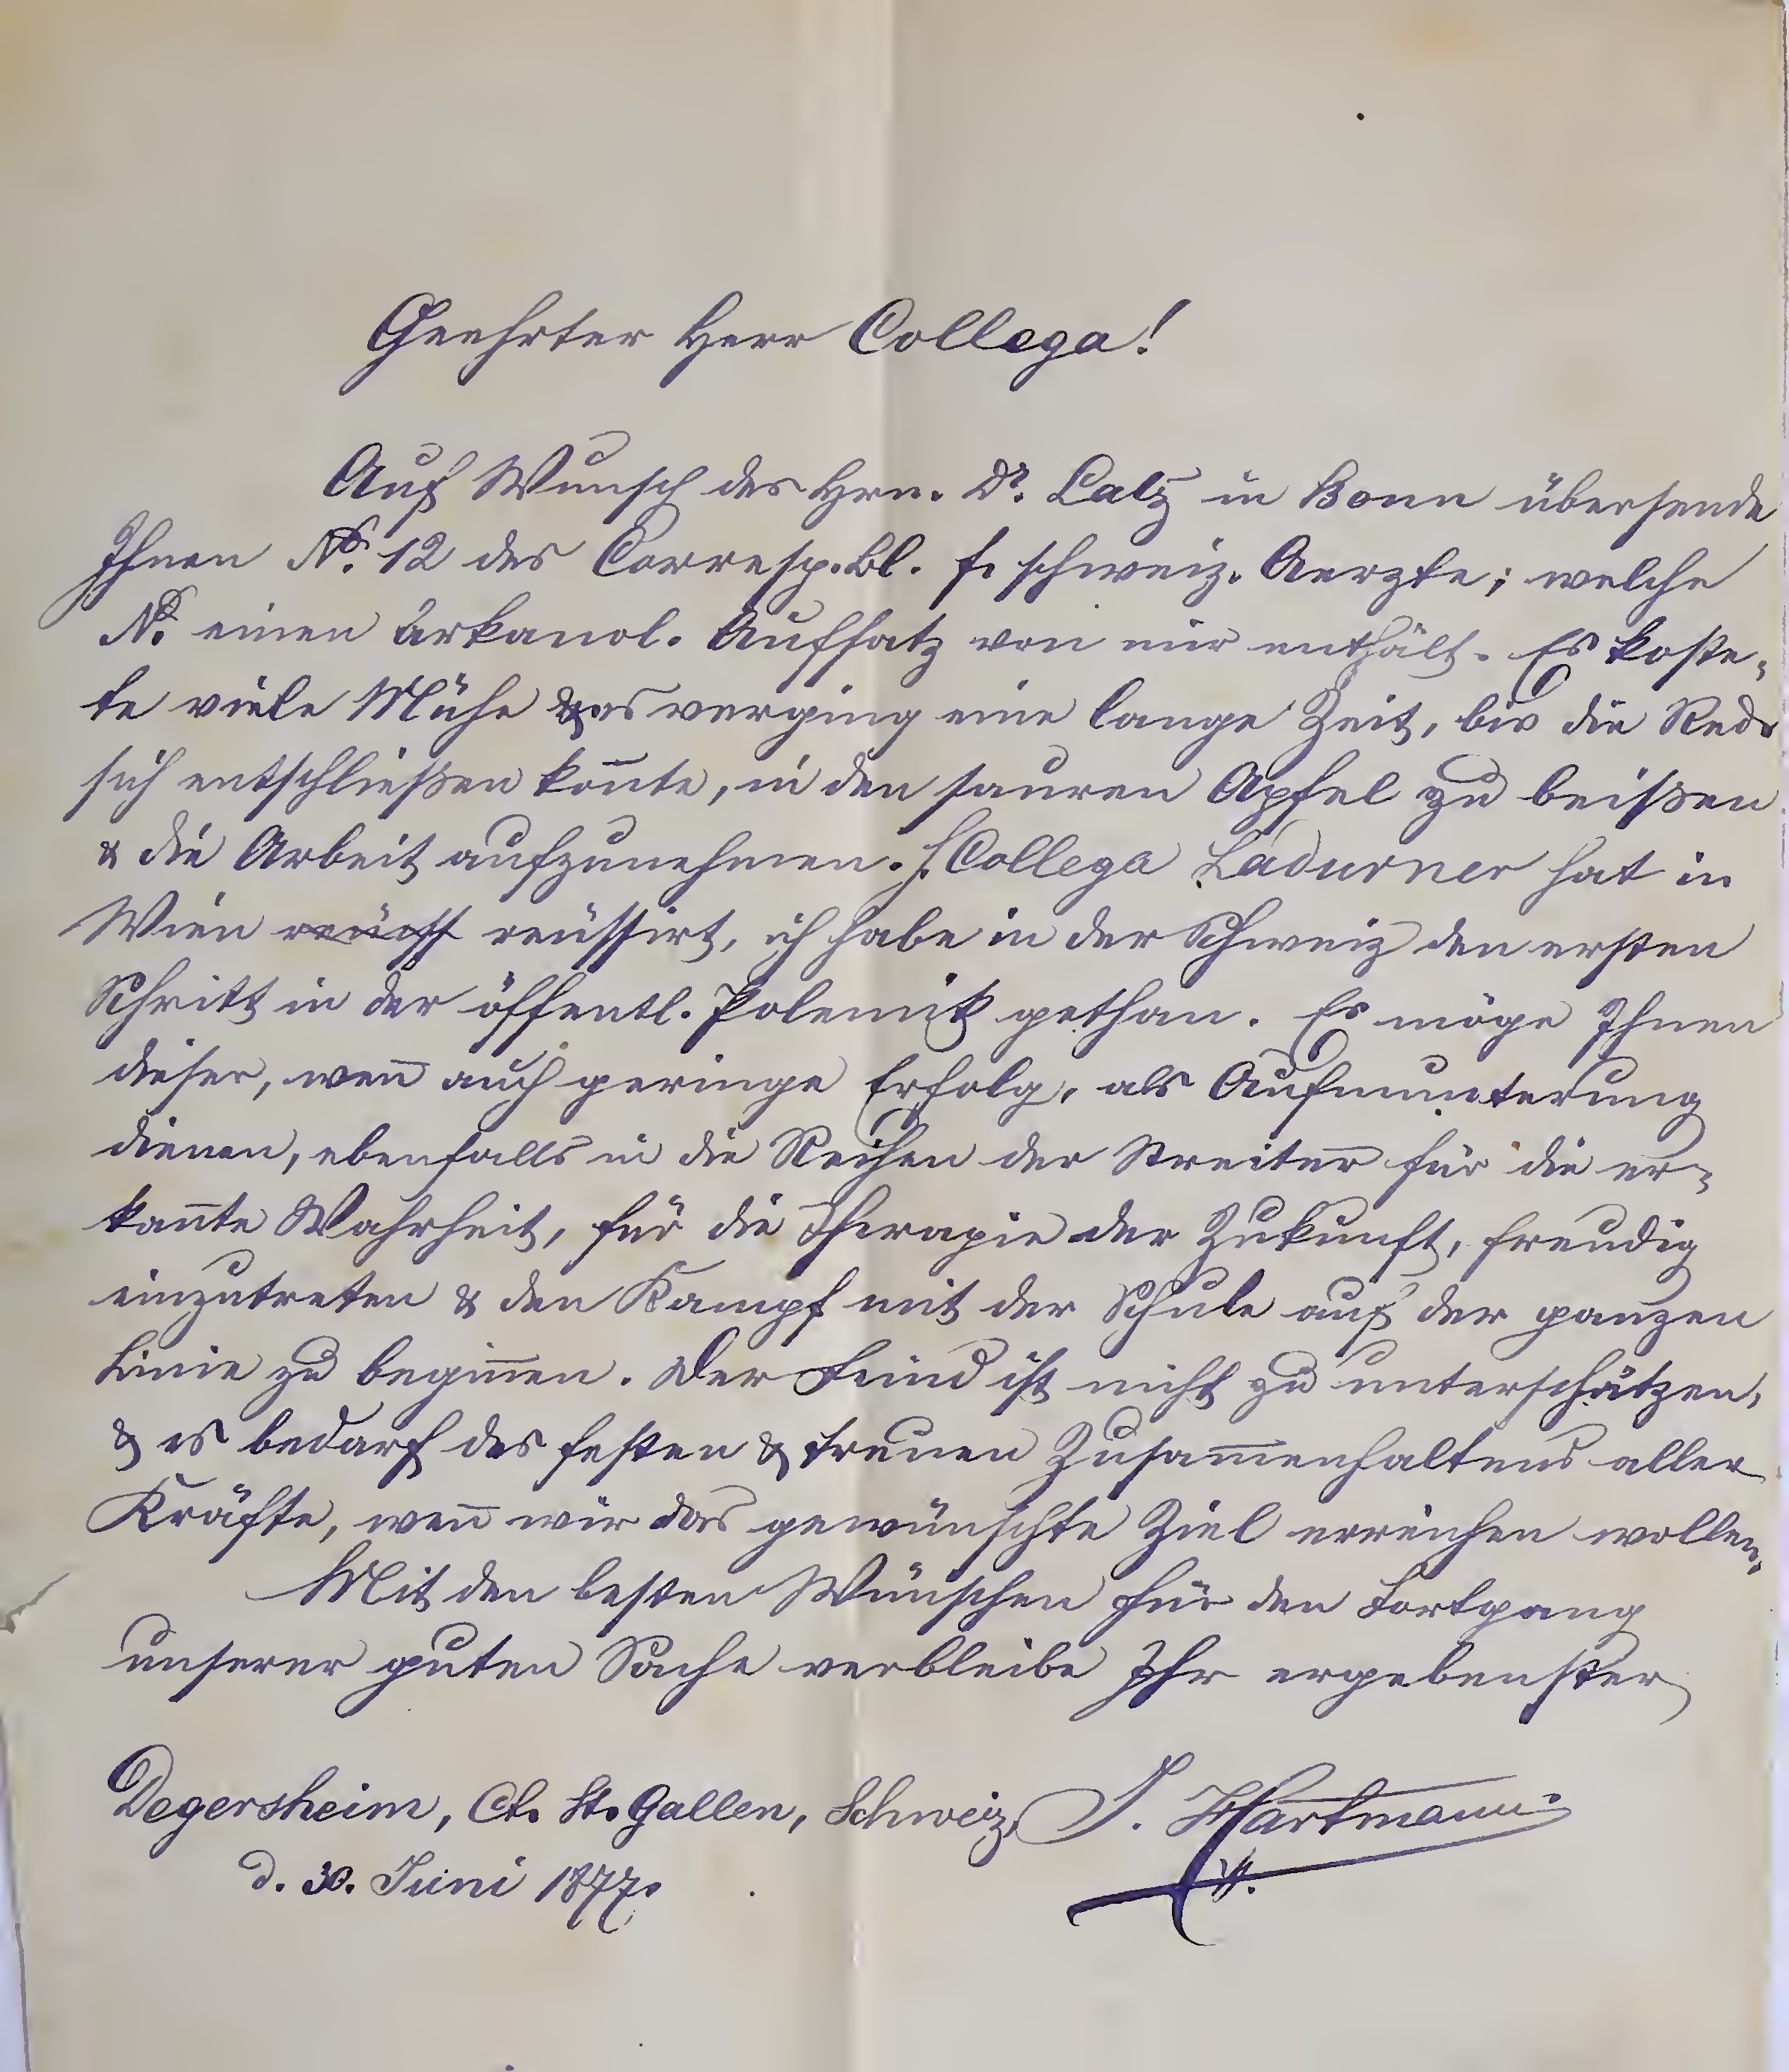 Geehrter Herr Collega!
Auf Wunsch des Hrn. Dr. Latz in Bonn übersende
Ihnen No. 12 des Corresp.bl. f. schweiz. Aerzte; welche
No. einen arkanol. Aufsatz von mir enthält. Es koste-
te viele Mühe & es verging eine lange Zeit, bis die Red.
sich entschließen kon̄te, in den sauren Apfel zu beißen
& die Arbeit aufzunehmen. H. Collega Ladurner hat in
Wien reüssirt, ich habe in der Schweiz den ersten
Schritt in der öffentl. Polemik gethan. Es möge Ihnen
dieser, wen̄ auch geringe Erfolg, als Aufmunterung
dienen, ebenfalls in die Reihen der Streiter für die er-
kan̄te Wahrheit, für die Therapie der Zukunft, freudig
einzutreten & den Kampf mit der Schule auf der ganzen
Linie zu begin̄en. Der Feind ist nicht zu unterschätzen,
& es bedarf des festen & treuen Zusam̄enhaltens aller
Kräfte, wen̄ wir das gewünschte Ziel erreichen wollen.
Mit den besten Wünschen für den Fortgang
unserer guten Sache verbleibe Ihr ergebenster
Degersheim, Ct. St. Gallen, Schweiz, J. Hartmann.
d. 30. Juni 1877.